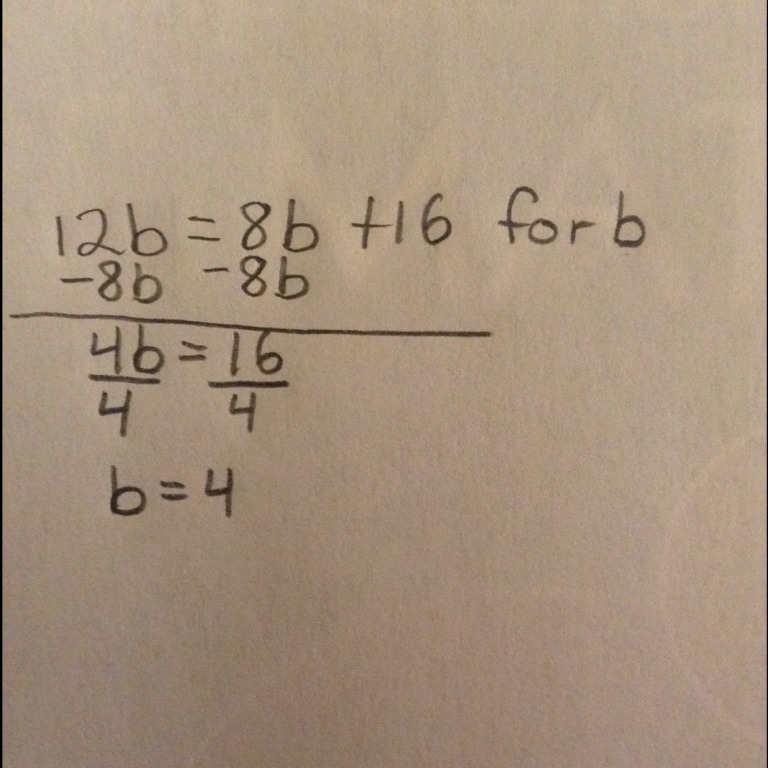 12b = 8b +16 for b
-8b -8b
4b = 16
4 4
b = 4